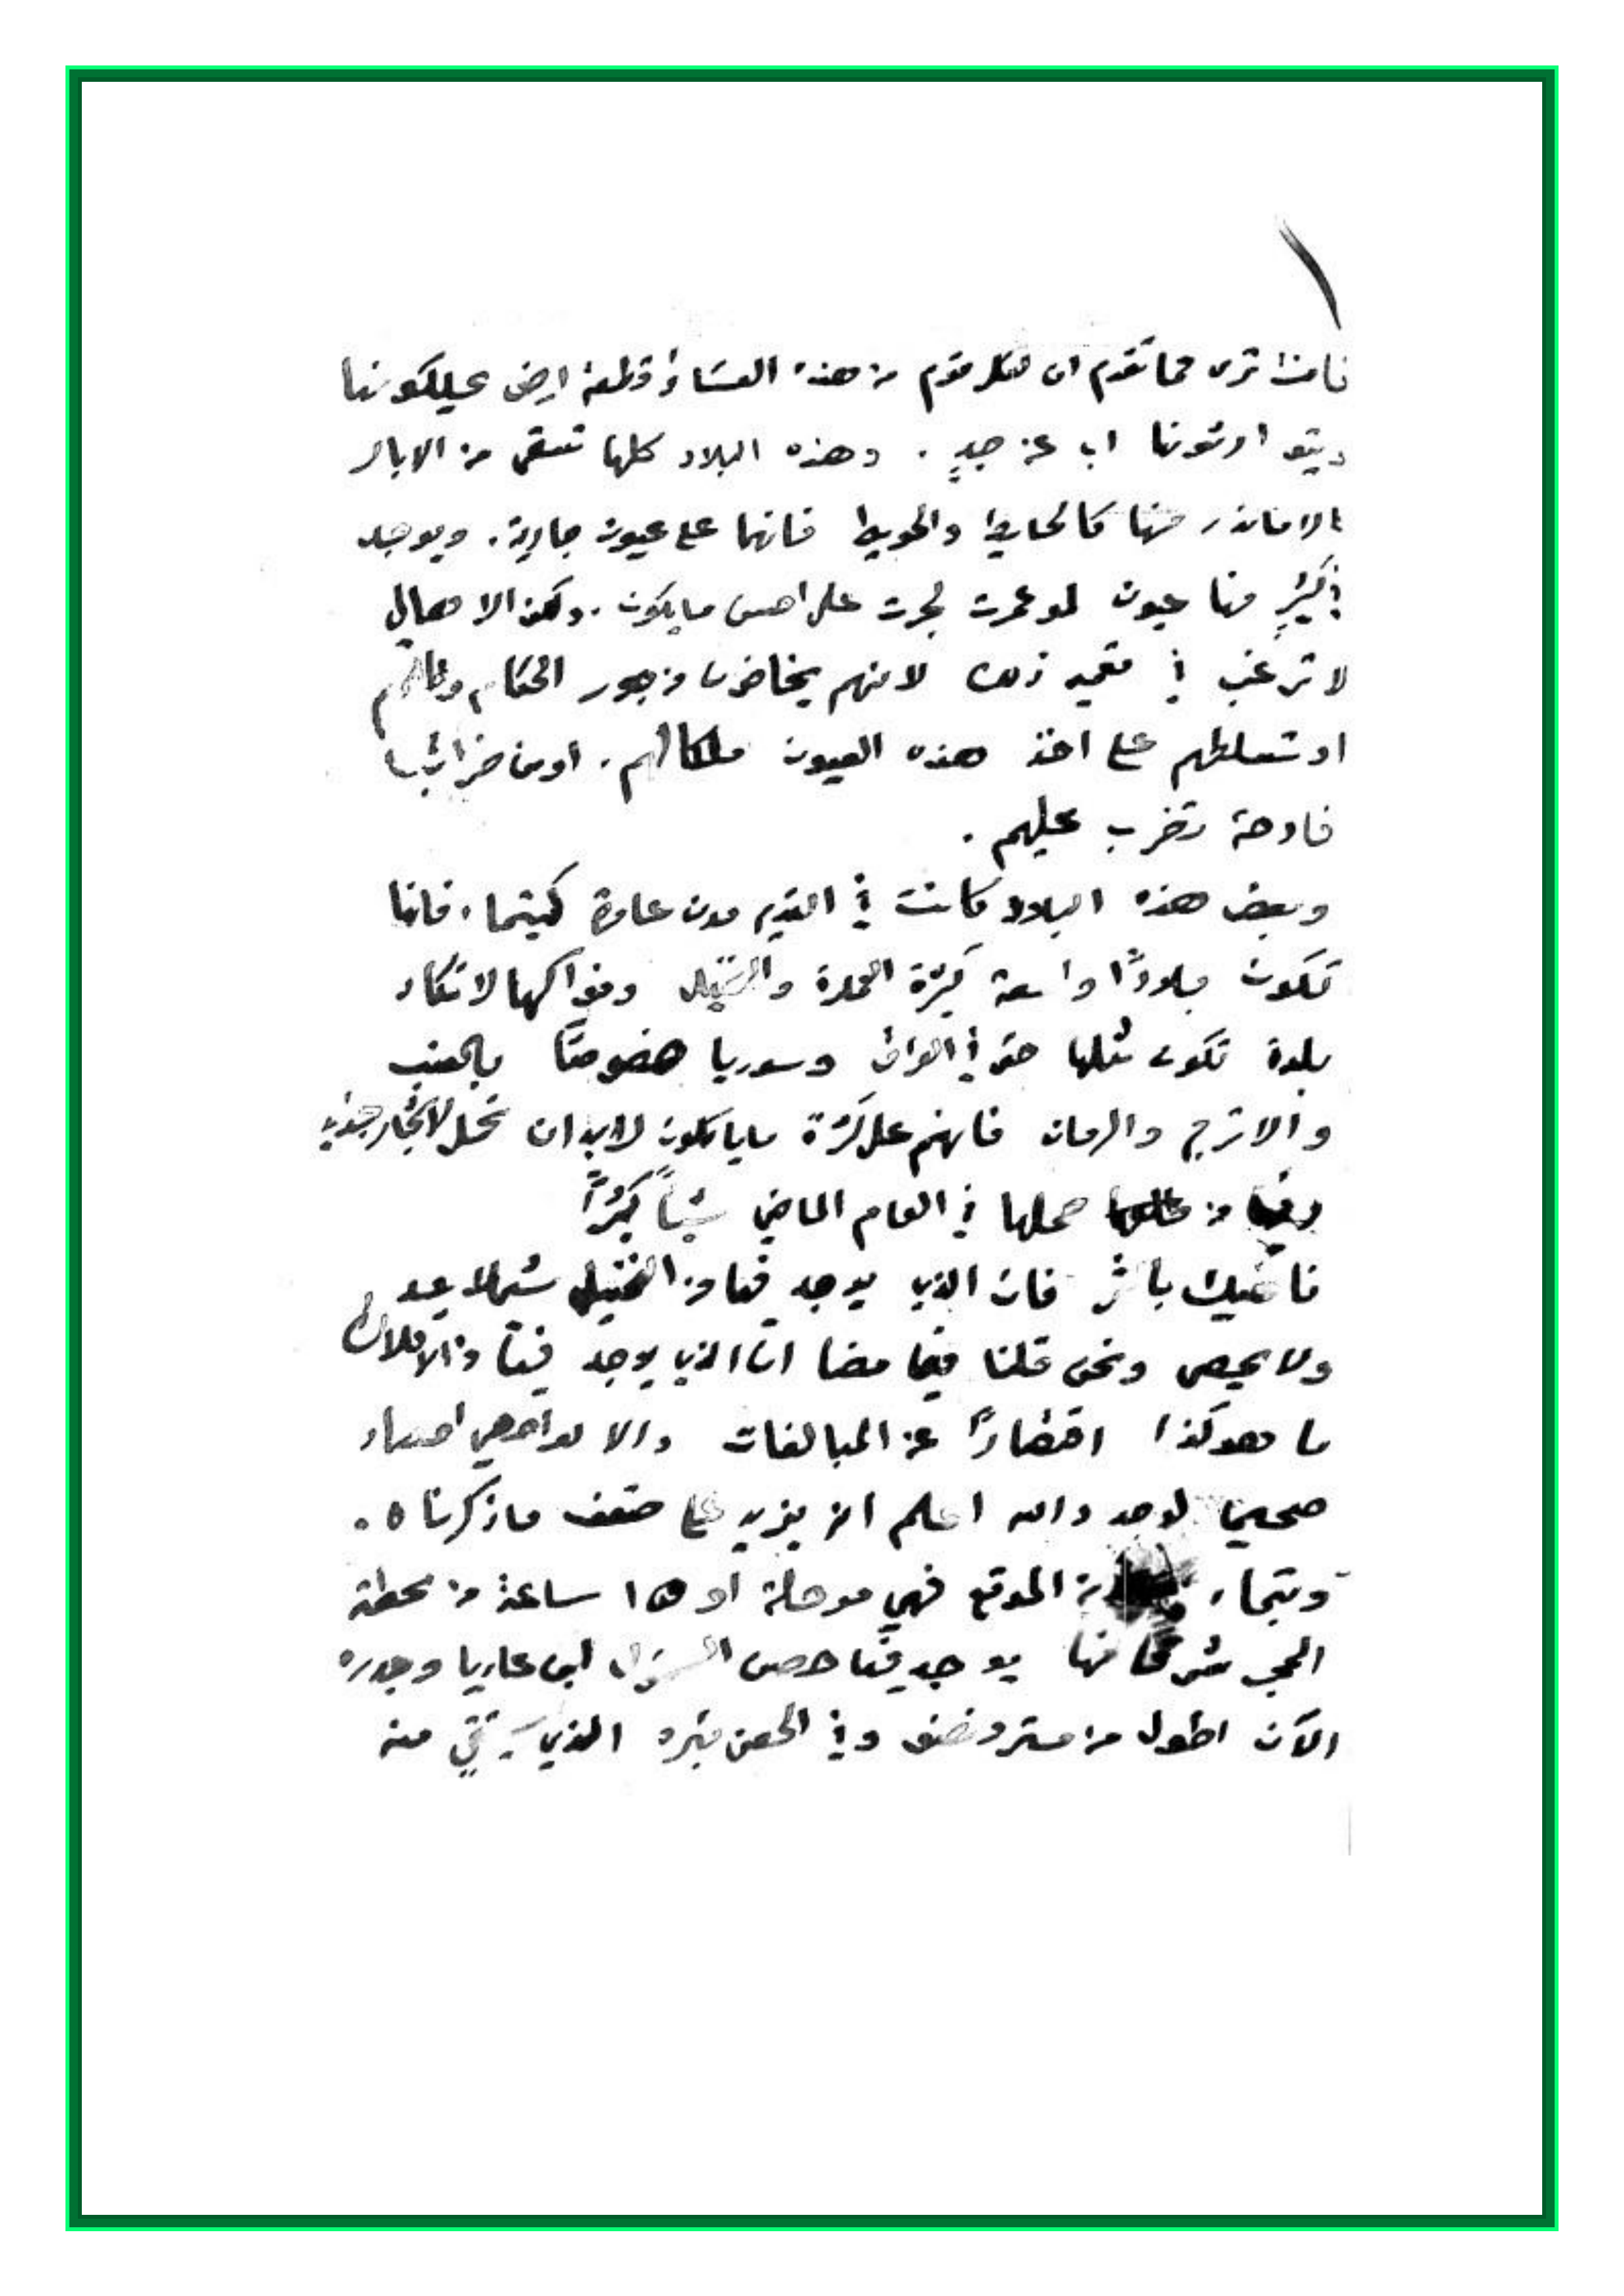 فانت ترى مما تقدم ان لكل قوم من هذه العشائر قطعة ارض يملكونها
ويتوارثونها اب عن جدٍ . وهذه البلاد كلها تسقى من الابار
الا ما نذر منها كالحايط والحويط فانها على عيون جارية. ويوجد
في كثيرٍ منها عيون لو عمرت لجرت على احسن ما يكون . ولكن الاهالي
لا ترغب في تعمير ذلك لانهم يخافون من جور الحكام
او تسلطهم على اخذ هذه العيون . او من ضرائب
فادحة تضرب عليهم .
وبعض هذه البلاد كانت في القديم مدن عامرة كتيما . فانها
تكون بلادًا واسعة كثيرة وفواكهها لا تكاد
بلدة تكون مثلها حتى في العراق وسوريا خصوصًا بالعنب
والاترج والرمان فانهم على كثرة ما ياكلون لابد ان تحمل
من حملها في العام الماضي شيئاً كثيرًا
فان الذي يوجد فيها من النخيل شيء لا يعد
ولا يحصى ونحن قلنا فيما مضا ان الذي يوجد فيها من الاملاك
ما هو كذا اقتصارًا عن المبالغات والا لو احصي احصاء
صحيحا لوجد والله اعلم انه يزيد على ضعف ما ذكرناه .
وتيماء الموقع فهي مرحلة او ١٥ ساعة من محطة
شرقا منها يوجد فيها حصن السموأل ابن عاديا وجدره
الآن اطول من متر ونصف وفي الحصن بئره الذي يستقي منه